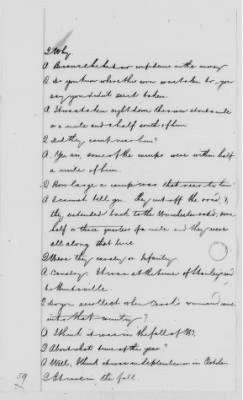 Q Why
A Because he had no confidence in the money
Q Do you know where this corn was taken to - you
say you didn't see it taken
A It was taken right down the river about a mile
or a mile and a half south of him
Q Did they camp near him?
A. Yes sir, some of the camps were within half
a mile of him.
Q How large a camp was that near to him?
A I cannot tell you They cut off the road, &
they extended back to the road, one
half or three quarters of a mile and they were
all along that line
Q Were they cavalry or Infantry
A Cavalry It was at the time of
to Huntsville
Q Do you recollect when command came
into that country?
A I think it was in the fall of
Q About what time of the year?
A Well, I think it was in September or October
It was in the fall
59